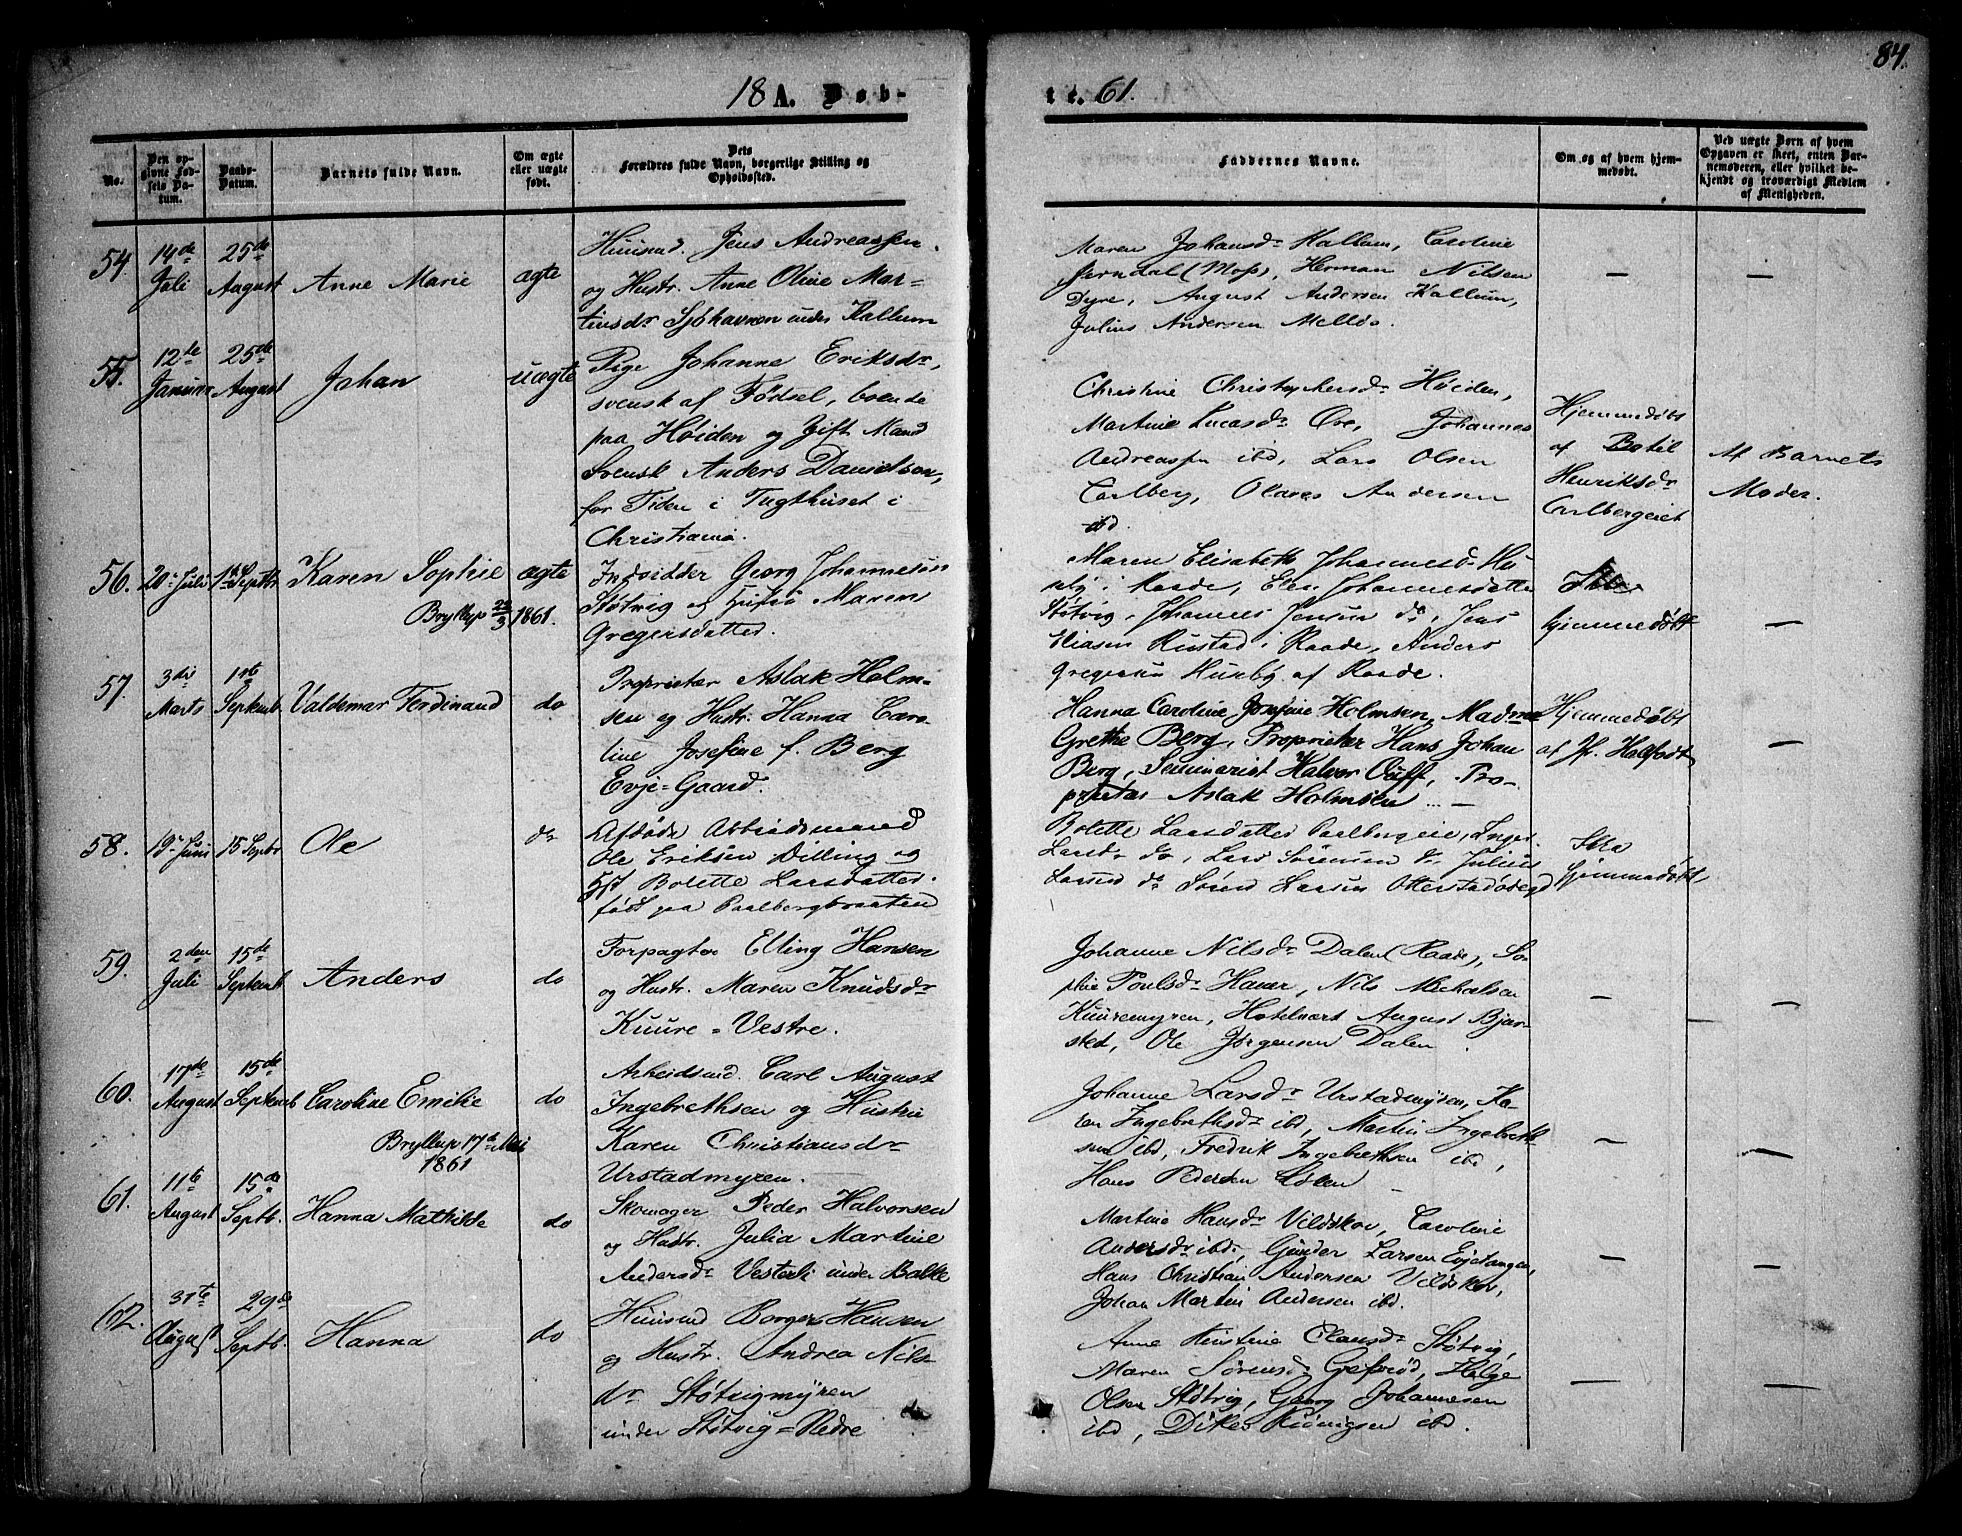 84.
18 A. Døb-
te. 61.
No.
Den opgivne Fødsels Datum.
Daabs-Datum.
Barnets fulde Navn.
Om ægte eller uægte født.
Dets Forældres fulde Navn, borgerlige Stilling og Opholdssted.
Faddernes Navne.
Om og af hvem hjemmedøbt.
Ved uægte Børn af hvem Opgaven er skeet, enten Barnemoderen, eller hvilket bekjendt og troværdigt Medlem af Menigheden.
54. 14de Juli 25de August Anne Marie ægte
Huusmd. Jens Andreassen
og Hustr. Anne Oline Mar-
tinsdr Sjøhavnen under Kallum
Maren Johansdr Kallum, Caroline
Jerndal (Moss), Herman Nilsen
Dyre, August Andersen Kallum,
Julius Andersen Melløs.
— —
55. 12te Januar 25de August Johan uægte
Pige Johanne Eriksdr,
svensk af Fødsel, boende
paa Høiden og Gift Mand
Svensk Anders Danielsen,
for Tiden i Tugthuset i
Christiania.
Christine Christophersdr Høiden,
Martine Lucasdr Øre, Johannes
Andreassen ibd, Lars Olsen
Carlberg, Olaves Andersen
ibd.
Hjemmedøbt
af Botil
Henriksdr
Carlbergeiet
Af Barnets
Moder.
56. 20de Juli 1ste Septbr Karen Sophie ægte
Bryllup 22/3 1861.
Inds Georg Johannesen
Støtvig og Hustru Maren
Gregersdatter.
Maren Elisabeth Johannesd. Hu-
seby i Raade, Elen Johannesdatter
Støtvig, Johannes Jensen do, Jens
Eliasen Rustad i Raade, Anders
Gregersen Huseby af Raade.
Ikke
hjemmedøbt
—
57. 3die Marts 1ste Septemb. Valdemar Ferdinand do
Proprietær Aslak Holm-
sen og Hustr. Hanna Caro-
line Josefine f. Berg
Evje-Gaard.
Hanna Caroline Josefine Holmsen, Madme
Grethe Berg, Proprietær Hans Johan
Berg, Seminarist Halvor Ouff, Pro-
prietær Aslak Holmsen —
Hjemmedøbt
af Jf. Holfodt
—
58. 19de Juni 15 Septbr Ole do
Afdøde Arbeidsmand
Ole Eriksen Dilling og
Bolette Larsdatter.
født paa Carlbergbraaten
Bolette Larsdatter Carlbergeie, Inger
Larsdr do, Lars Sørensen do Julius
Larsen do Søren Larsen Otterstadødegd
Ikke
hjemmedøbt
59. 2den Juli 15de Septemb Anders do
Forpagter Elling Hansen
og Hustr. Maren Knudsdr
Kuure = Vestre.
Johanne Nilsdr Dalen (Raade), So-
phie Poulsdr Haner, Nils Michelsen
Kuuremyren, Hotelvært August Bjer-
sted, Ole Jørgensen Dalen.
— —
60. 17de August 15de Septemb Caroline Emilie do
Bryllup 17de Mai
1861
Arbeidsmd. Carl August
Ingebrethsen og Hustru
Karen Christiansdr
Urstadmyren.
Johanne Larsdr Urstadmyren, Ka-
ren Ingebrethsdr ibd, Martin Ingebreth-
sen ibd, Fredrik Ingebrethsen ibd,
Hans Pedersen
— —
61. 11te August 15de Septb. Hanna Mathilde do
Skomager Peder Halvorsen
og Hustr. Julia Martine
Andersdr Vesterli under Balke
Martine Hansdr Vildskov, Caroline
Andersdr ibd, Gunder Larsen Evjetangen,
Hans Christian Andersen Vildskov,
Johan Martin Andersen ibd.
— —
62. 31te August 29de Septb. Hanna do
Huusmd Borger Hansen
og Hustr. Andrea Nils-
dr Støtvigmyren
under Støtvig = Nedre
Anne Kirstine Clausdr Støtvig,
Maren Sørensdr Gipsrød, Helge
Olsen Støtvig, Georg Johannesen
ibd, ibd.
— —